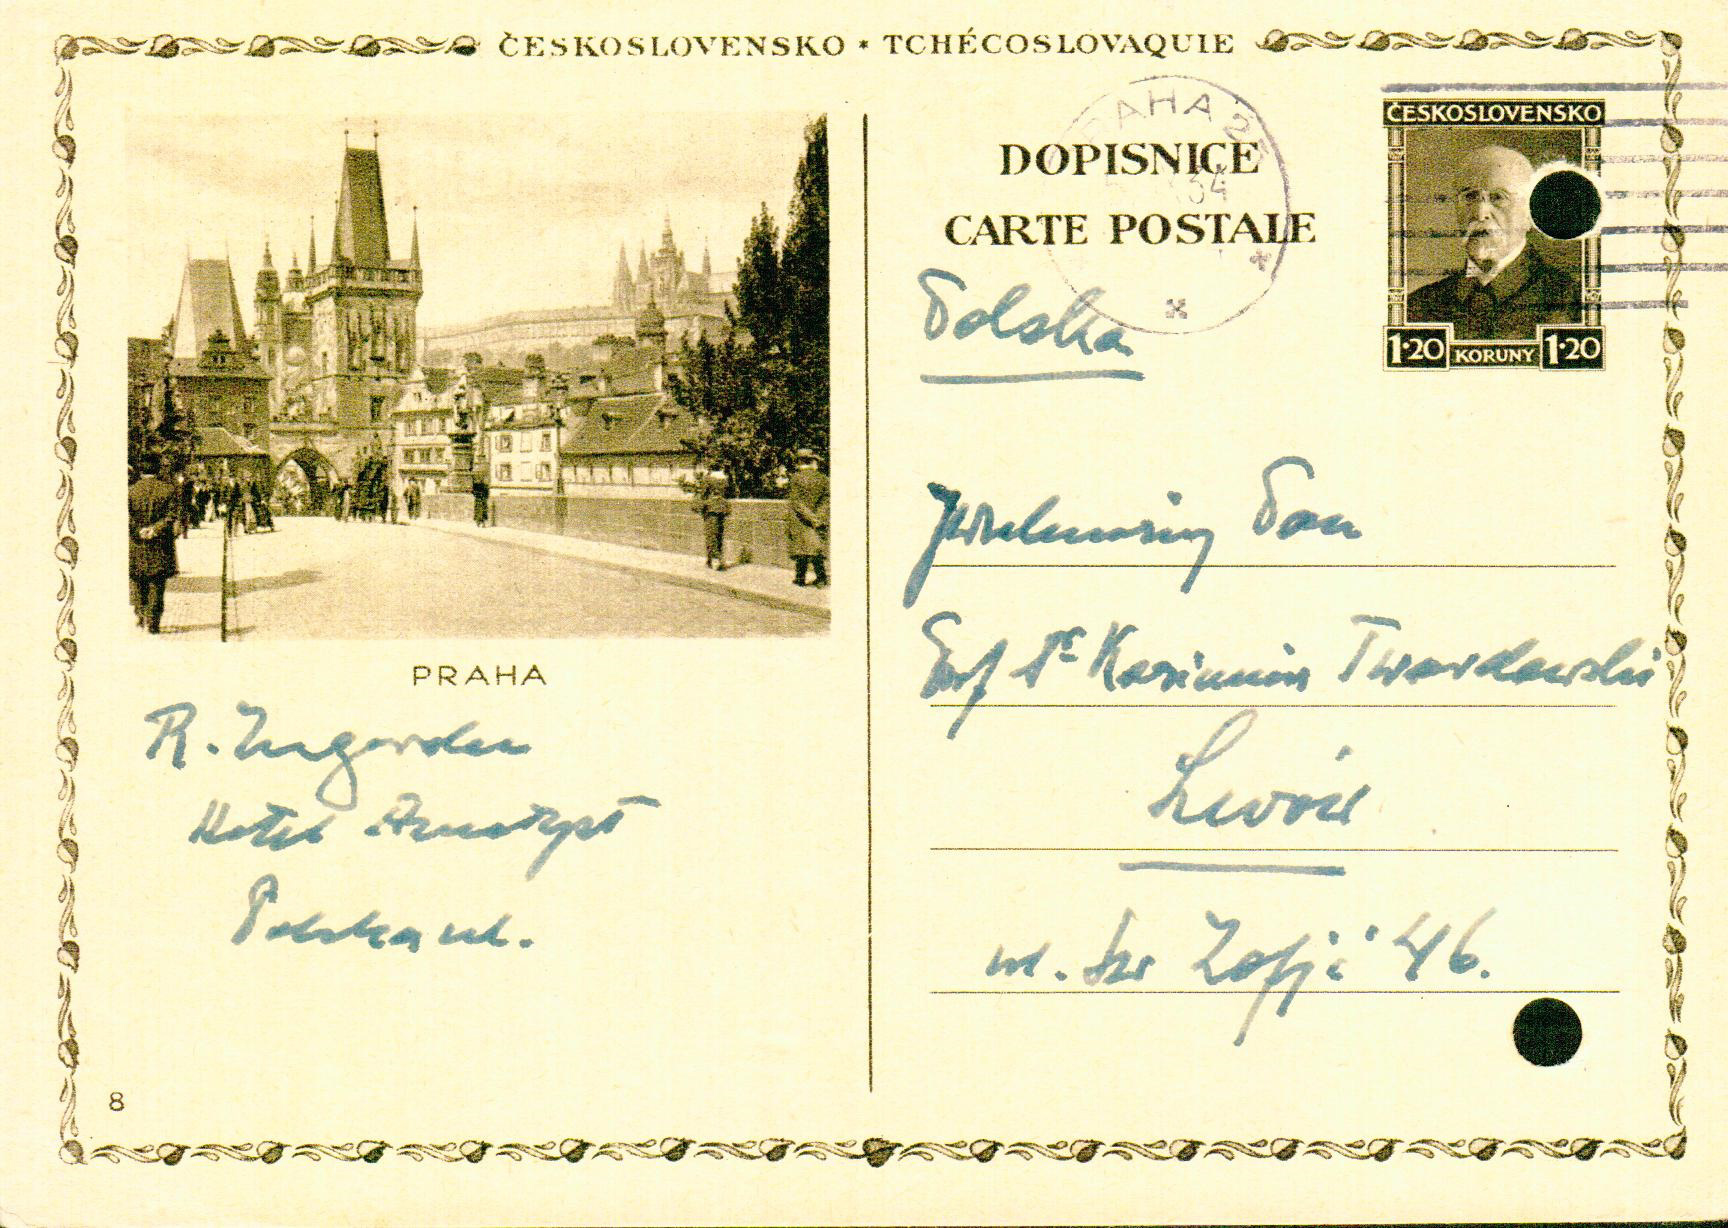 ČESKOSLOVENSKO * TCHÉCOSLOVAQUIE
PRAHA
R. Ingarden
Hotel
Polska ul.
8
DOPISNICE
CARTE POSTALE
PRAHA
34
ČESKOSLOVENSKO
1·20 KORUNY 1·20
Polska
Jwielmożny Pan
Prof Dr Kazimierz Twardowski
Lwów
ul. Św Zofji 46.